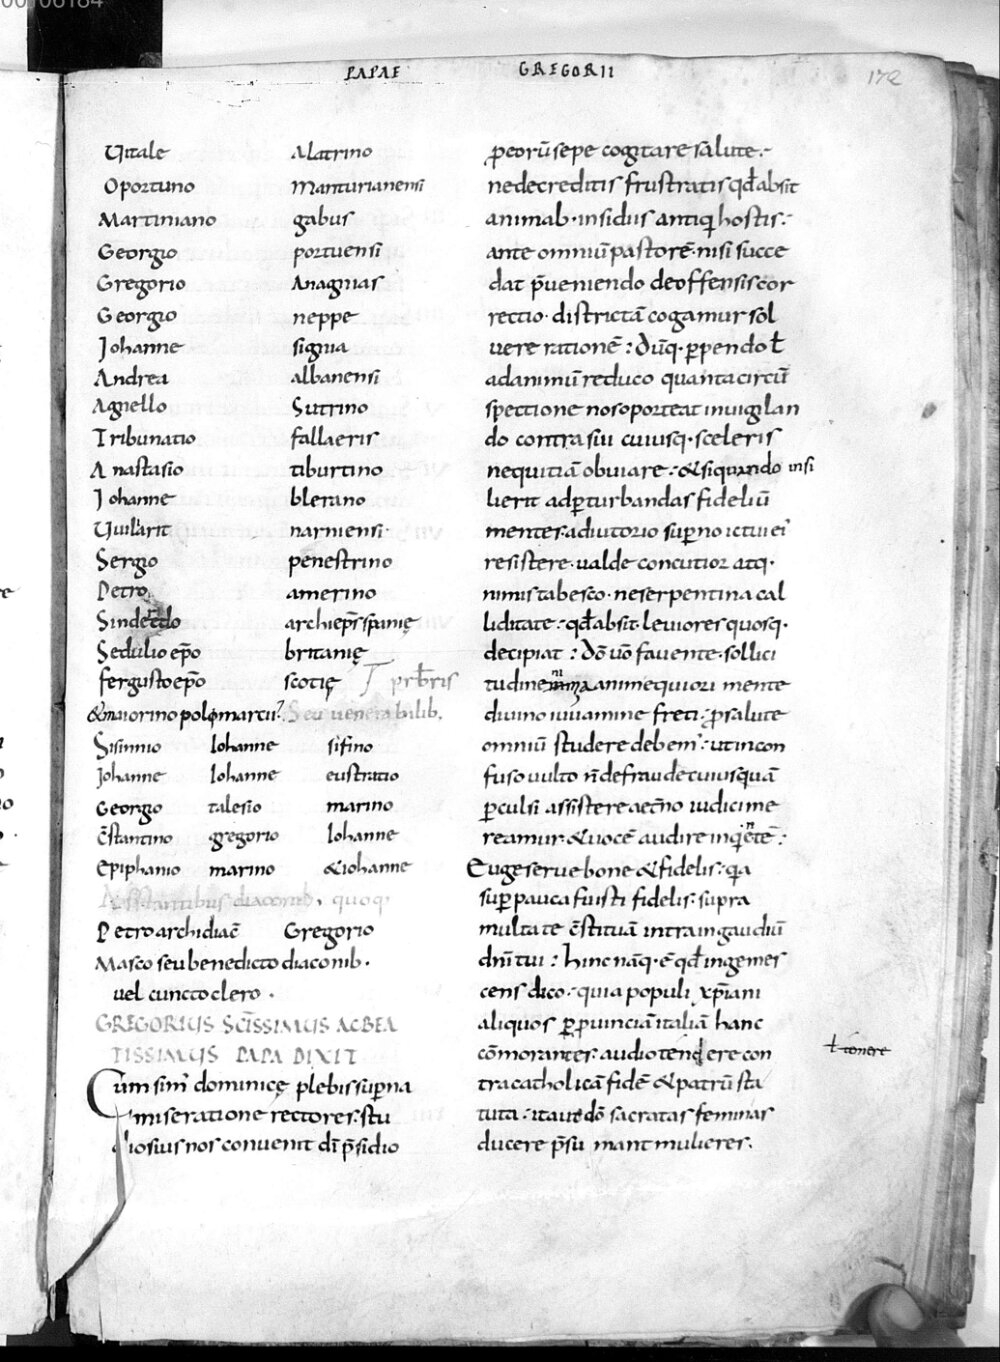 PAPAE GREGORII
172
Uitale Alatrino
Oportuno Manturianensi
Martiniano gabus
Georgio portuensi
Gregorio Anagnias
Georgio neppe
Iohanne signia
Andrea albanensi
Agnello Sutrino
Tribunatio fallaeris
Anastasio tiburtino
Iohanne blerano
Uuilarit narniensi·
Sergio penestrino
Petro amerino
archiep̄s spanię
Sedulio ep̄o britanię
fergusto ep̄o scotię prb̄ris
& maiorino polomartii Seu uenerabilib,
Sisinnio Iohanne sifino
Iohanne Iohanne eustratio
Georgio talesio marino
c̄stantino gregorio Iohanne
Epiphanio marino & iohanne
Astantibus diaconib, quoq·
Petro archidiac̄ Gregorio
Masco seu benedicto diaconib·
uel cuncto clero·
GREGORIUS SC̄ISSIMUS AC BEA
TISSIMUS PAPA DIXIT
Cum sim' dominicę plebis sup̄na
miseratione rectores: stu
diosius nos conuenit dī p̄sidio
peorū sepe cogitare salute:-
ne de creditis frustratis qd̄ absit
animab· insidiis antiq hostis:-
ante omniū pastorē· nisi succe
dat p̄ueniendo de offensis cor
rectio· districtā cogamur sol
uere rationē: Dūq· ꝑpendo ł
ad animū reduco quanta circū
spectione nos oporteat inuigilan
do contra siu cuiusq· sceleris
nequitiā obuiare:· & si quando insi
lierit ad ꝑturbandas fideliū
mentes· adiutorio sup̄no ictui ei'
resistere· ualde concutior atq·
nimis tabesco· ne serpentina cal
liditate· qd̄ absit· leuiores quosq·
decipiat: Dō uō fauente· sollici
tudine animequiori mente
diuino iuuamine freti· ꝓ salute
omniū studere debem': ut in con
fuso uulto n̄ de fraude cuiusquā
ꝑculsi assistere aet̄no iudici me
reamur· & uocē audire inquientē:
Euge serue bone & fidelis: qa
sup̄ pauca fuisti fidelis: supra
multa te c̄stituā intra in gaudiū
dn̄i tui: hinc nāq· ē qd̄ ingemes
cens dico· quia populi xp̄iani
aliquos ꝑ ꝓuinciā italiā hanc
cōmorantes· audio tendere con
ł tenere
tra catholicā fidē & patrū sta
tuta: ita ut dō sacratas feminas
ducere p̄su mant mulieres: